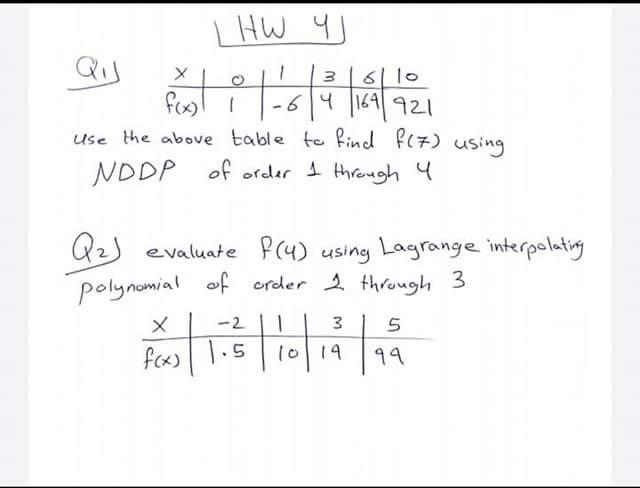 HW 4
Q1)
x 0 1 3 6 10
f(x) 1 -6 4 169 921
use the above table to find f(7) using
NDDP of order 1 through 4
Q2) evaluate f(4) using Lagrange interpolating
polynomial of order 1 through 3
x -2 1 3 5
f(x) 1.5 10 19 99